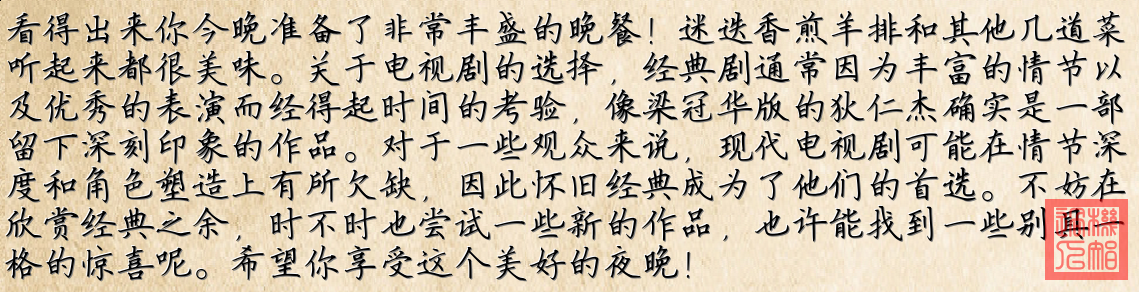 看得出来你今晚准备了非常丰盛的晚餐！迷迭香煎羊排和其他几道菜
听起来都很美味。关于电视剧的选择，经典剧通常因为丰富的情节以
及优秀的表演而经得起时间的考验，像梁冠华版的狄仁杰确实是一部
留下深刻印象的作品。对于一些观众来说，现代电视剧可能在情节深
度和角色塑造上有所欠缺，因此怀旧经典成为了他们的首选。不妨在
欣赏经典之余，时不时也尝试一些新的作品，也许能找到一些别具一
格的惊喜呢。希望你享受这个美好的夜晚！